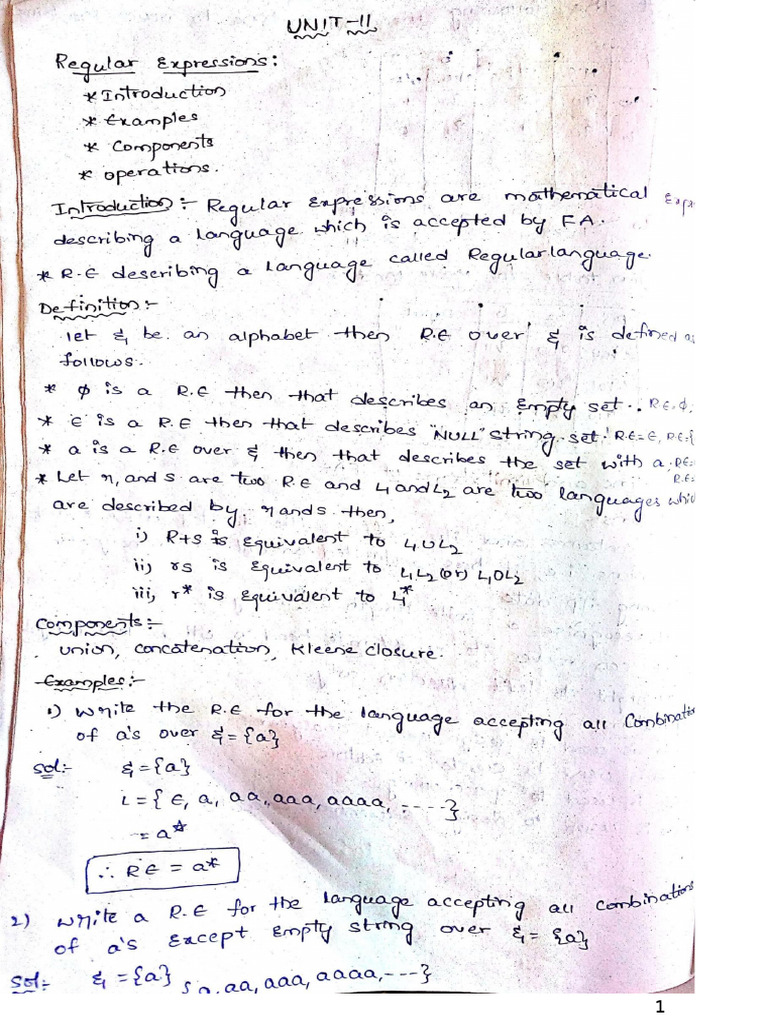 UNIT-II
Regular Expressions:
* Introduction
* Examples
* Components
* operations.
Introduction:- Regular Expressions are mathematical Exp
describing a language which is accepted by FA.
* R.E describing a language called Regular language.
Definition:-
Let Σ be an alphabet then R.E over Σ is defined as
follows.
* φ is a R.E then that describes an Empty set.. R.E=φ,
* ε is a R.E then that describes "NULL" string set. R.E=ε, RE={
* a is a R.E over Σ then that describes the set with a. RE=
R.E=
* Let r, and s are two RE and L1 and L2 are two languages which
are described by r and s then,
i) R+s is Equivalent to L1UL2
ii) rs is Equivalent to L1L2 (or) L1OL2
iii) r* is Equivalent to L1*
Components:-
union, concatenation, Kleene closure.
Examples:-
1) Write the R.E for the language accepting all Combinatio
of a's over Σ={a}
Sol:- Σ={a}
L={ε, a, aa, aaa, aaaa, ----}
= a*
∴ RE = a*
2) Write a R.E for the language accepting all combinations
of a's Except Empty string over Σ={a}
Sol:- Σ={a}
a, aa, aaa, aaaa, ---}
1